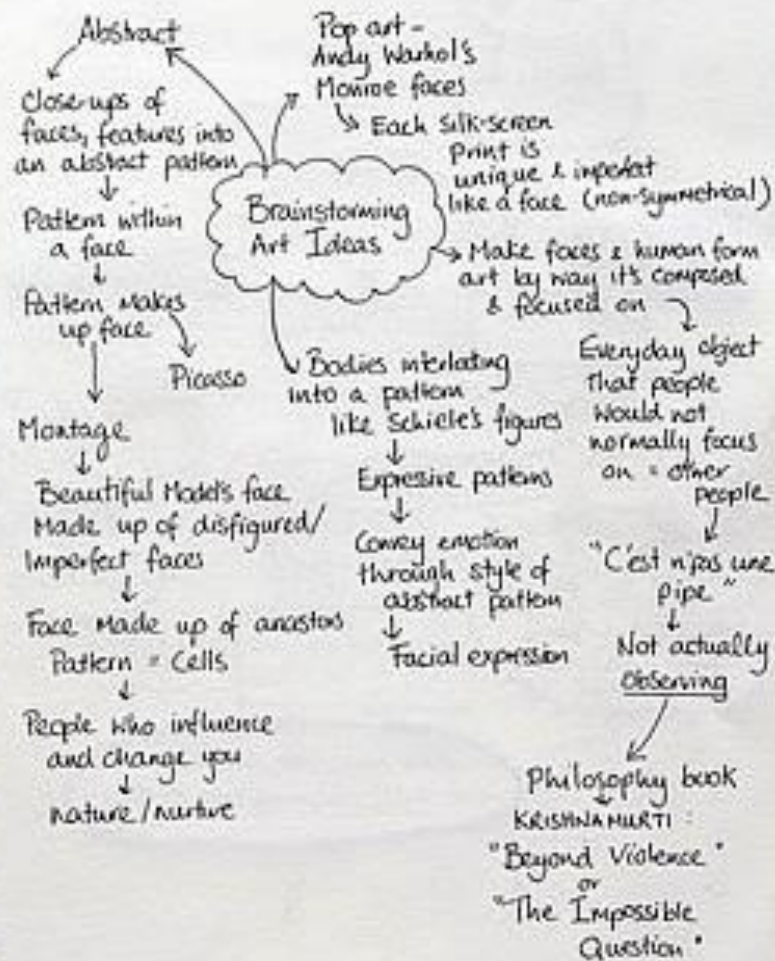 Brainstorming
Art Ideas
Abstract
Close-ups of
faces, features into
an abstract pattern
Pattern within
a face
Pattern makes
up face
Picasso
Montage
Beautiful Model's face
Made up of disfigured/
Imperfect faces
Face Made up of ancestors
Pattern = Cells
People who influence
and change you
nature/nurture
Pop art -
Andy Warhol's
Monroe faces
Each Silk-screen
Print is
unique & imperfect
like a face (non-symmetrical)
Make faces & human form
art by way it's composed
& focused on
Everyday object
that people
would not
normally focus
on = other
people
"C'est n'pas une
pipe"
Not actually
observing
Philosophy book
KRISHNAMURTI:
"Beyond Violence"
or
"The Impossible
Question"
Bodies interlating
into a pattern
like Schiele's figures
Expressive patterns
Convey emotion
through style of
abstract pattern
Facial expression